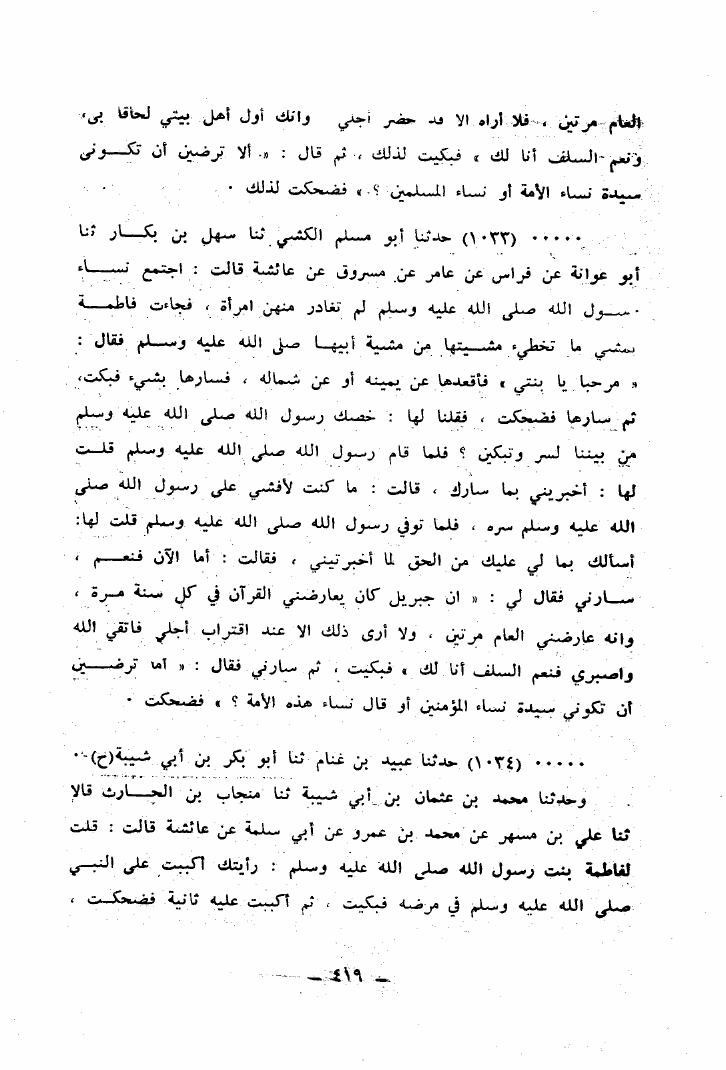 العام مرتين ، فلا أراه الا قد حضر أجلي وانك أول أهل بيتي لحاقا بي،
ونعم السلف أنا لك » فبكيت لذلك ، ثم قال : « ألا ترضين أن تكـــونى
سيدة نساء الأمة أو نساء المسلمين ؟ » فضحكت لذلك ٠
٠٠٠٠٠ (١٠٣٣) حدثنا أبو مسلم الكشي ثنا سهل بن بكـــار ثنا
أبو عوانة عن فراس عن عامر عن مسروق عن عائشة قالت : اجتمع نســـاء
رســـول الله صلى الله عليه وسلم لم تغادر منهن امرأة ، فجاءت فاطمـــة
تمشي ما تخطىء مشـــيتها من مشية أبيهـــا صلى الله عليه وســـلم فقال :
« مرحبا يا بنتي » فأقعدها عن يمينه أو عن شماله ، فسارها بشيء فبكت،
ثم سارها فضحكت ، فقلنا لها : خصك رسول الله صلى الله عليه وسلم
من بيننا لسر وتبكين ؟ فلما قام رسول الله صلى الله عليه وسلم قلـــت
لها : أخبريني بما سارك ، قالت : ما كنت لأفشي على رسول الله صلى
الله عليه وسلم سره ، فلما توفي رسول الله صلى الله عليه وسلم قلت لها:
أسألك بما لي عليك من الحق لما أخبرتيني ، فقالت : أما الآن فنعـــم ،
ســـارني فقال لي : « ان جبريل كان يعارضني القرآن في كل سنة مـرة ،
وانه عارضني العام مرتين ، ولا أرى ذلك الا عند اقتراب أجلي فاتقي الله
واصبري فنعم السلف أنا لك » فبكيت ، ثم سارني فقال : « أما ترضـــين
أن تكوني سيدة نساء المؤمنين أو قال نساء هذه الأمة ؟ » فضحكت ٠
٠٠٠٠٠ (١٠٣٤) حدثنا عبيد بن غنام ثنا أبو بكر بن أبي شيبة(ح)٠
وحدثنا محمد بن عثمان بن أبي شيبة ثنا منجاب بن الحـــارث قالا
ثنا علي بن مسهر عن محمد بن عمرو عن أبي سلمة عن عائشة قالت : قلت
لفاطمة بنت رسول الله صلى الله عليه وسلم : رأيتك أكببت على النبـــي
صلى الله عليه وسلم في مرضه فبكيت ، ثم أكببت عليه ثانية فضحكـــت ،
— ٤١٩ —